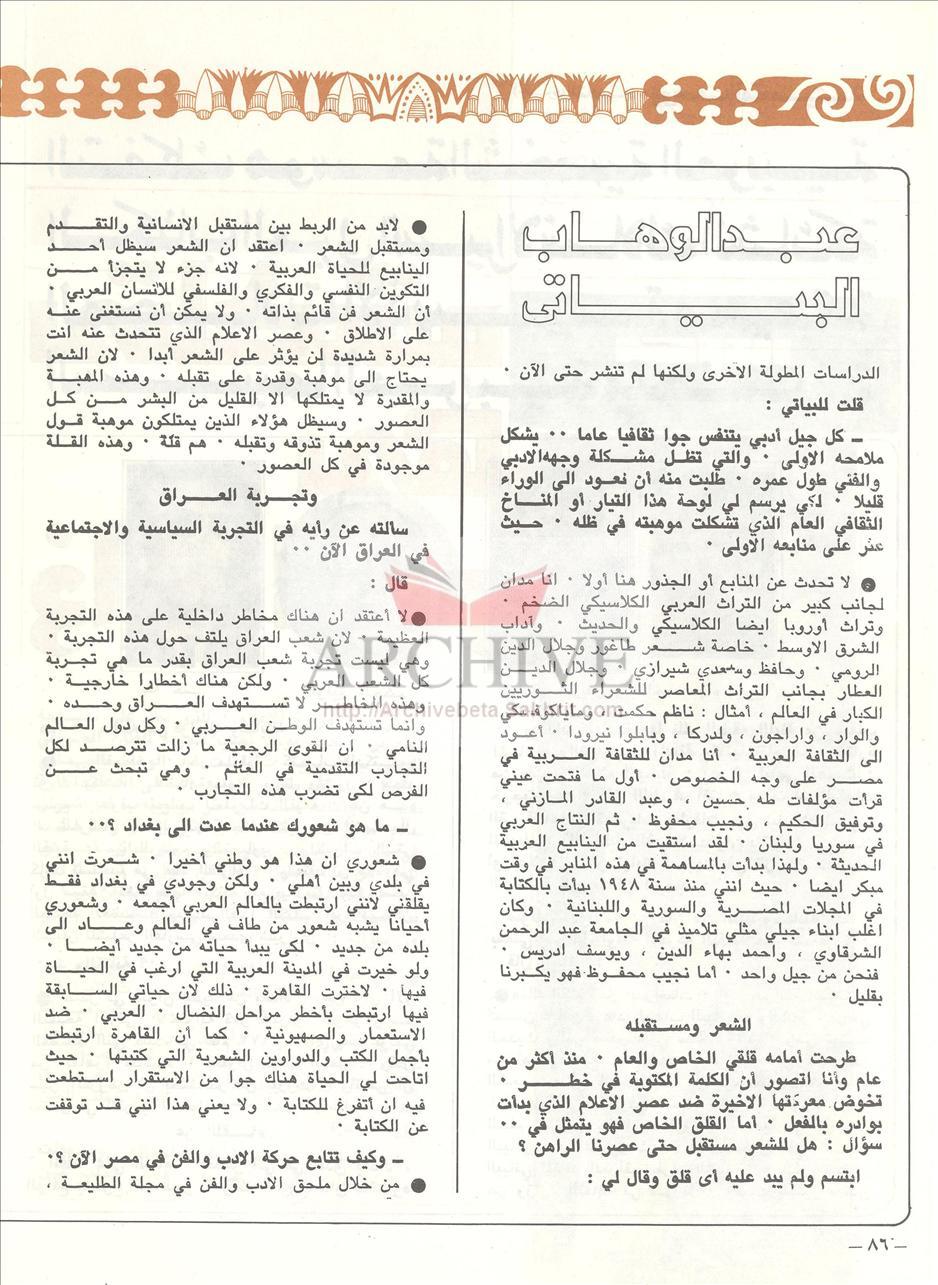 عبدالوهاب
البياتى
الدراسات المطولة الاخرى ولكنها لم تنشر حتى الآن ·
قلت للبياتي :
ـ كل جيل أدبي يتنفس جوا ثقافيا عاما ·· يشكل
ملامحه الاولى · والتي تظل مشكلة وجهه الادبي
والفتي طول عمره · طلبت منه أن نعود الى الوراء
قليلا · لكي يرسم لي لوحة هذا التيار أو المناخ
الثقافي العام الذي تشكلت موهبته في ظله · حيث
عثر على منابعه الاولى ·
● لا تحدث عن المنابع أو الجذور هنا أولا · انا مدان
لجانب كبير من التراث العربي الكلاسيكي الضخم ·
وتراث أوروبا ايضا الكلاسيكي والحديث · وآداب
الشرق الاوسط · خاصة شعر طاغور وجلال الدين
الرومي · وحافظ وسعدي شيرازي · وجلال الدين
العطار بجانب التراث المعاصر للشعراء الثوريين
الكبار في العالم ، أمثال : ناظم حكمت ، وماياكوفسكي
والوار ، واراجون ، ولدركا ، وبابلوا نيرودا · أعود
الى الثقافة العربية · أنا مدان للثقافة العربية في
مصر على وجه الخصوص · أول ما فتحت عيني
قرأت مؤلفات طه حسين ، وعبد القادر المازني ،
وتوفيق الحكيم ، ونجيب محفوظ · ثم النتاج العربي
في سوريا ولبنان · لقد استقيت من الينابيع العربية
الحديثة · ولهذا بدأت بالمساهمة في هذه المنابر في وقت
مبكر ايضا · حيث انني منذ سنة ١٩٤٨ بدأت بالكتابة
في المجلات المصرية والسورية واللبنانية · وكان
اغلب ابناء جيلي مثلي تلاميذ في الجامعة عبد الرحمن
الشرقاوي ، واحمد بهاء الدين ، ويوسف ادريس ·
فنحن من جيل واحد · أما نجيب محفوظ فهو يكبرنا
بقليل ·
الشعر ومستقبله
طرحت أمامه قلقي الخاص والعام · منذ أكثر من
عام وأنا اتصور أن الكلمة المكتوبة في خطر ·
تخوض معركتها الاخيرة ضد عصر الاعلام الذي بدأت
بوادره بالفعل · أما القلق الخاص فهو يتمثل في ··
سؤال : هل للشعر مستقبل حتى عصرنا الراهن ؟
ابتسم ولم يبد عليه أى قلق وقال لي :
● لابد من الربط بين مستقبل الانسانية والتقدم
ومستقبل الشعر · اعتقد ان الشعر سيظل أحد
الينابيع للحياة العربية · لانه جزء لا يتجزأ من
التكوين النفسي والفكري والفلسفي للانسان العربي ·
أن الشعر فن قائم بذاته · ولا يمكن أن نستغنى عنه
على الاطلاق · وعصر الاعلام الذي تتحدث عنه انت
بمرارة شديدة لن يؤثر على الشعر أبدا · لان الشعر
يحتاج الى موهبة وقدرة على تقبله · وهذه المهبة
والمقدرة لا يمتلكها الا القليل من البشر من كل
العصور · وسيظل هؤلاء الذين يمتلكون موهبة قول
الشعر وموهبة تذوقه وتقبله · هم قلة · وهذه القلة
موجودة في كل العصور ·
وتجربة العراق
سالته عن رأيه في التجربة السياسية والاجتماعية
في العراق الآن ··
قال :
● لا أعتقد ان هناك مخاطر داخلية على هذه التجربة
العظيمة · لان شعب العراق يلتف حول هذه التجربة ·
وهي ليست تجربة شعب العراق بقدر ما هي تجربة
كل الشعب العربي · ولكن هناك أخطارا خارجية ·
وهذه المخاطر لا تستهدف العراق وحده ·
وانما تستهدف الوطن العربي · وكل دول العالم
النامي · ان القوى الرجعية ما زالت تترصد لكل
التجارب التقدمية في العالم · وهي تبحث عن
الفرص لكى تضرب هذه التجارب ·
ـ ما هو شعورك عندما عدت الى بغداد ؟··
● شعوري ان هذا هو وطني أخيرا · شعرت انني
في بلدي وبين أهلي · ولكن وجودي في بغداد فقط
يقلقني لانني ارتبطت بالعالم العربي أجمعه · وشعوري
أحيانا يشبه شعور من طاف في العالم وعاد الى
بلده من جديد · لكى يبدأ حياته من جديد أيضا ·
ولو خيرت في المدينة العربية التي ارغب في الحياة
فيها · لاخترت القاهرة · ذلك لان حياتي السابقة
فيها ارتبطت بأخطر مراحل النضال · العربي · ضد
الاستعمار والصهيونية · كما أن القاهرة ارتبطت
بأجمل الكتب والدواوين الشعرية التي كتبتها · حيث
اتاحت لي الحياة هناك جوا من الاستقرار استطعت
فيه ان أتفرغ للكتابة · ولا يعني هذا انني قد توقفت
عن الكتابة ·
ـ وكيف تتابع حركة الادب والفن في مصر الآن ؟·
● من خلال ملحق الادب والفن في مجلة الطليعة ،
ARCHIVE
http://Archivebeta.Sakhrit.com
ـ ٨٦ ـ